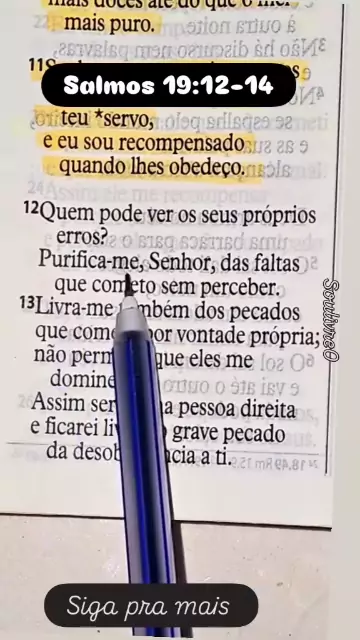 mais doces até do que o mel
mais puro.
11
Salmos 19:12-14
teu *servo,
e eu sou recompensado
quando lhes obedeço.
12Quem pode ver os seus próprios
erros?
Purifica-me, Senhor, das faltas
que cometo sem perceber.
13Livra-me também dos pecados
que come por vontade própria;
não perm que eles me
domine
Assim ser a pessoa direita
e ficarei li grave pecado
da desob ncia a ti.
SoulivreO
Siga pra mais